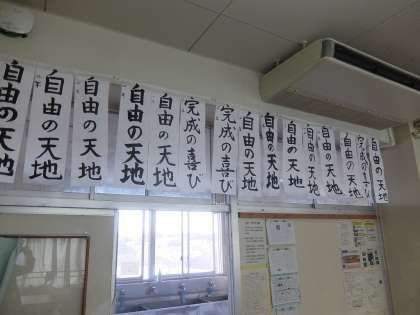 自由の天地
自由の天地
自由の天地
自由の天地
自由の天地
完成の喜び
完成の喜び
自由の天地
自由の天地
自由の天地
自由の天地
自由の天地
自由の天地
完成の喜び
自由の天地